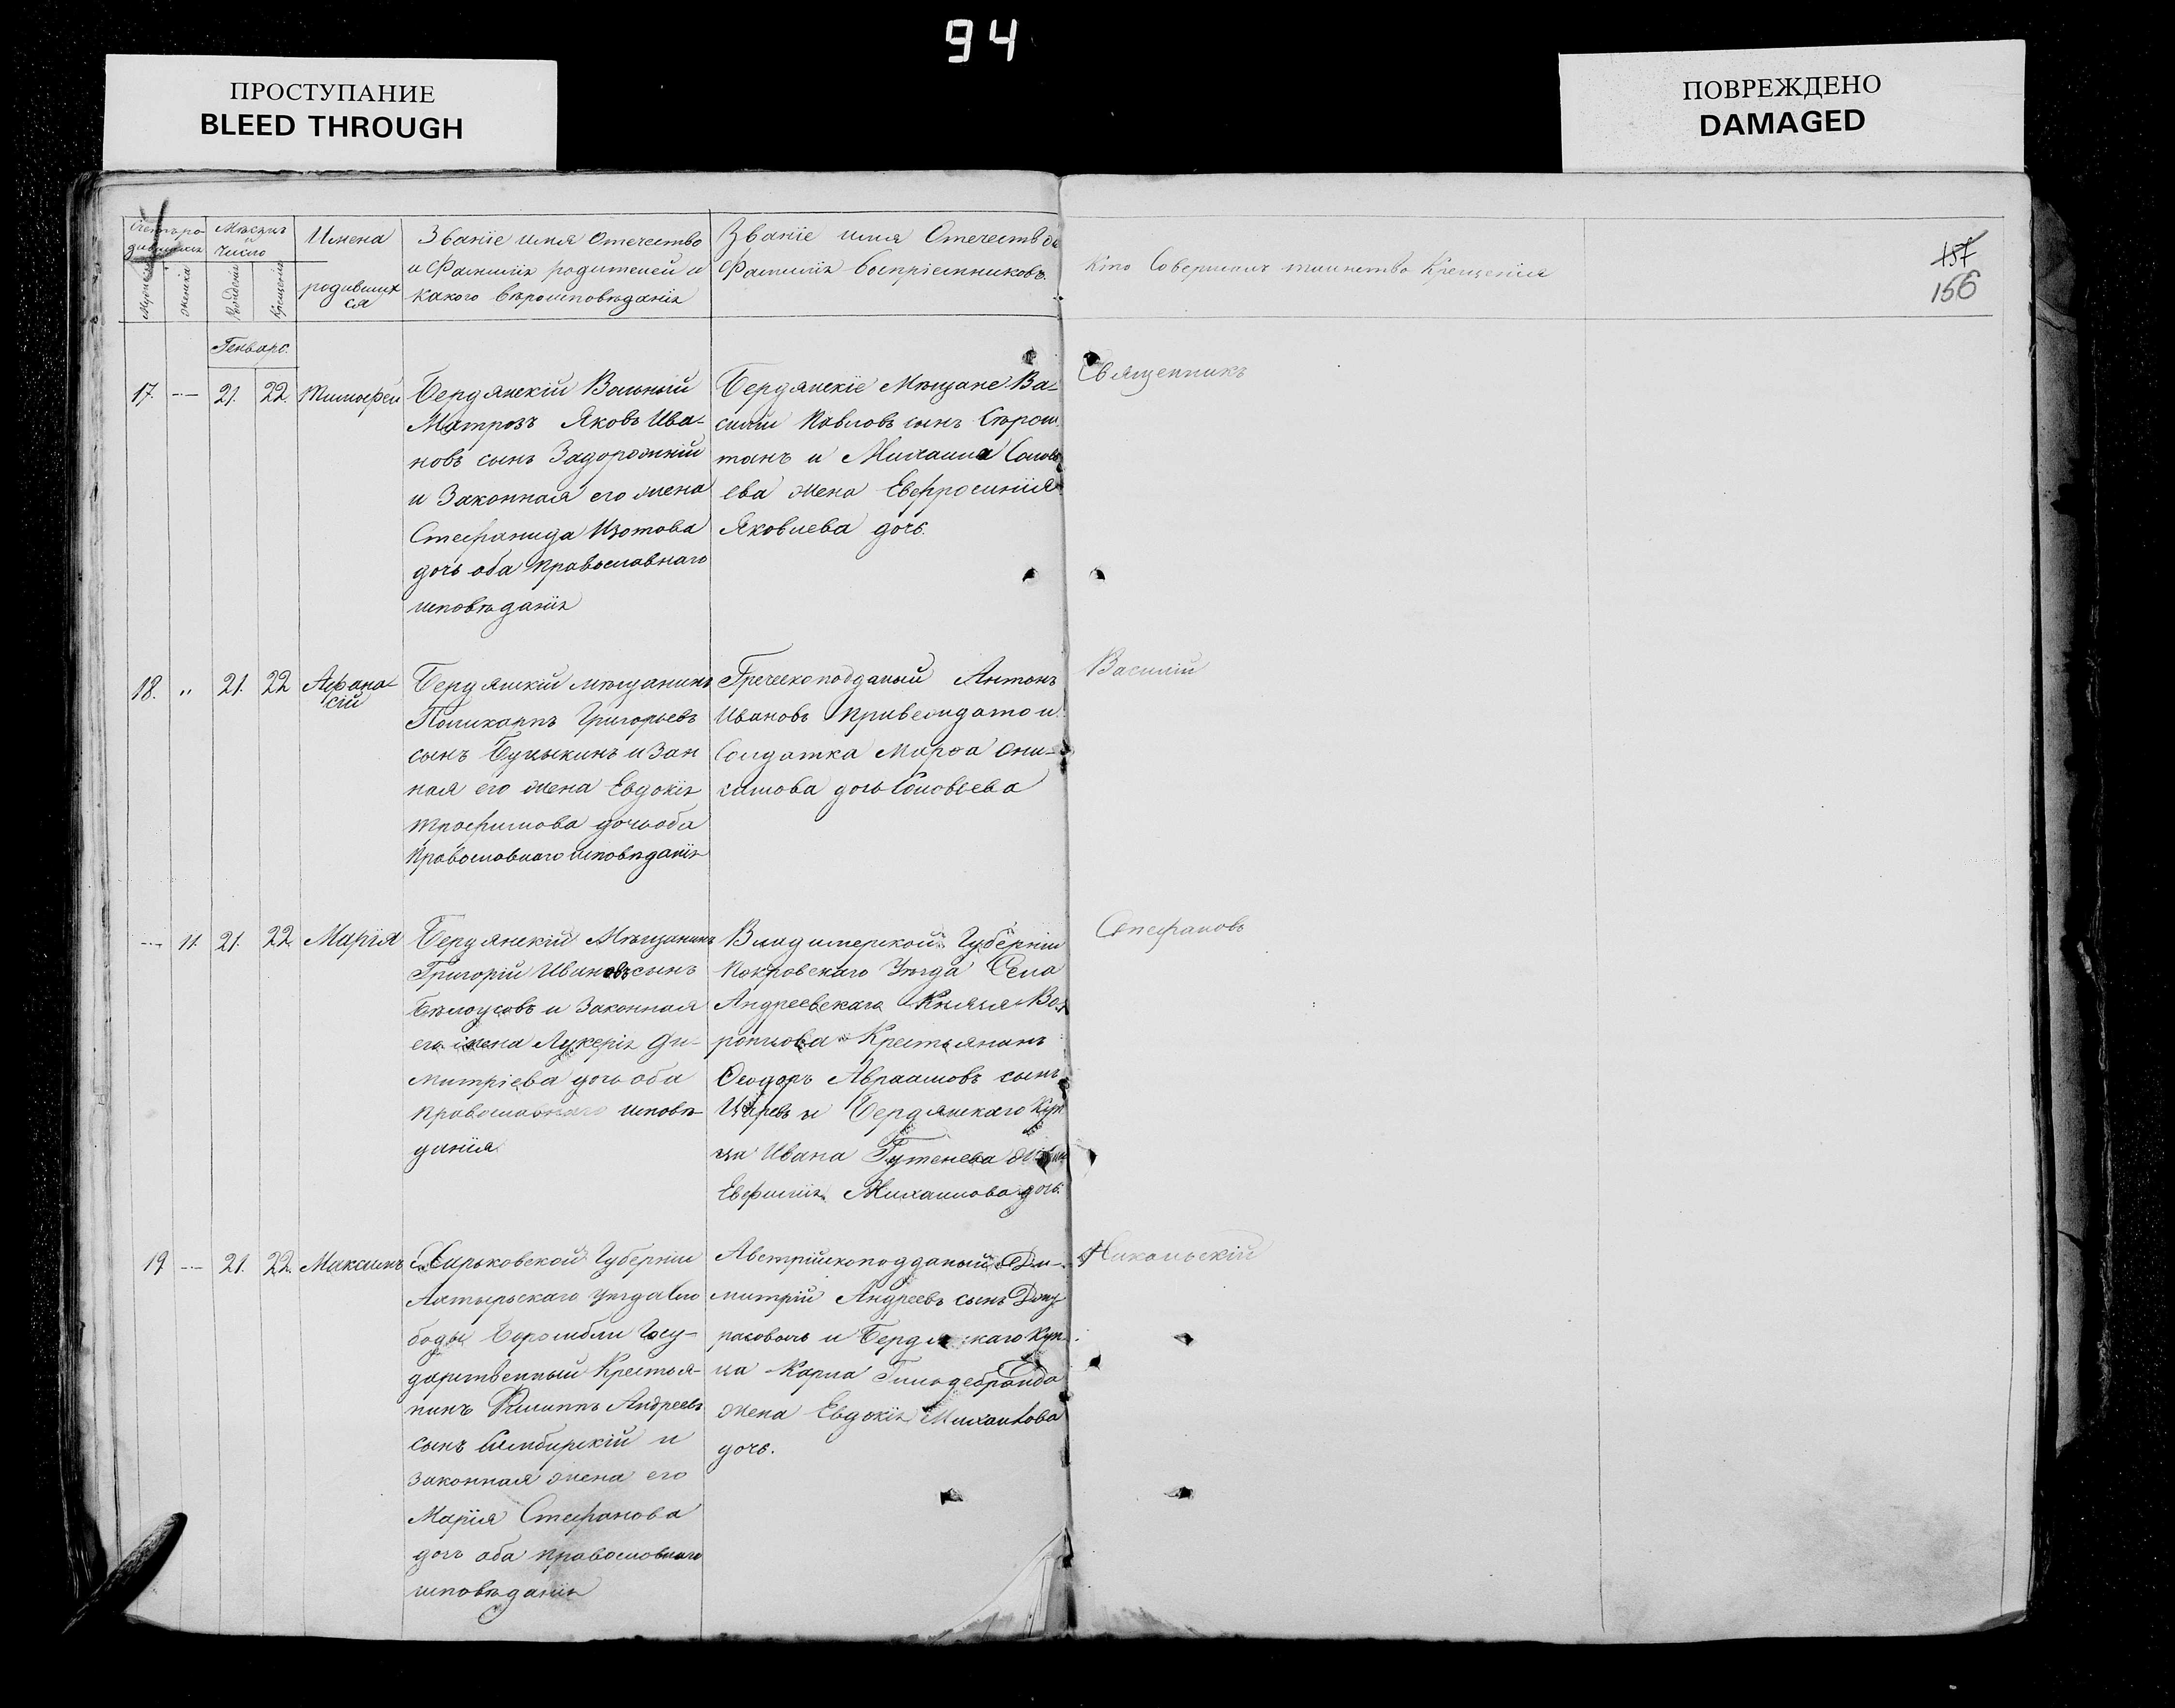 94
ПРОСТУПАНИЕ
BLEED THROUGH
ПОВРЕЖДЕНО
DAMAGED
157
156
Мѣсяцъ и число
Рожденія
Крещенія
Имена родившихся
Званіе имя отечество
и Фамилія родителей и
какого вѣроисповѣданія
Званіе имя Отечество
Фамилія воспріемниковъ
Кто Совершалъ таинство Крещенія
Генварь.
17. 21. 22. Тимофей
Бердянскій Вольный
Матрозъ Яковъ Ива-
новъ сынъ Задорожній
и Законная его жена
Стефанида Изотова
дочь оба православнаго
исповѣданія
Бердянскіе Мѣщане Ва-
силій Павловъ сынъ
и Михаила
ева жена Евфросинія
Яковлева дочь.
Священникъ
18. " 21. 22 Афана-
сій
Бердянскій мѣщанинъ
Поликарпъ Григорьевъ
сынъ и Зан
ная его жена Евдокія
Трофимова дочь оба
Православнаго исповѣданія
Греческоподданый Антонъ
Ивановъ и
Солдатка Марѳа Они-
симова дочь Соловьева
Василій
11. 21. 22 Марія
Бердянскій Мѣщанинъ
Григорій Ивановъ сынъ
Бѣлоусовъ и Законная
его жена Лукерія Ди-
митріева дочь оба
православнаго исповѣ-
данія
Владимерской Губерніи
Покровскаго Уѣзда Села
Андреевскаго Князя Во-
ронцова Крестьянинъ
Ѳеодоръ Авраамовъ сынъ
и Бердянскаго Куп
ца Ивана Гутенева жена
Евфимія Михаилова дочь.
Стефановъ
19 21. 22. Максимъ
Харьковской Губерніи
Ахтырскаго уѣзда Сло
боды Боромбли Госу-
дарственный Крестья-
нинъ Филиппъ Андреевъ
сынъ Симбирскій и
законная жена его
Марія Стефанова
дочь оба православнаго
исповѣданія
Австрійскоподданый Ди-
митрій Андреевъ сынъ
и Бердянскаго Куп-
ца Карла Гильдебранда
жена Евдокія Михайлова
дочь.
Никольскій